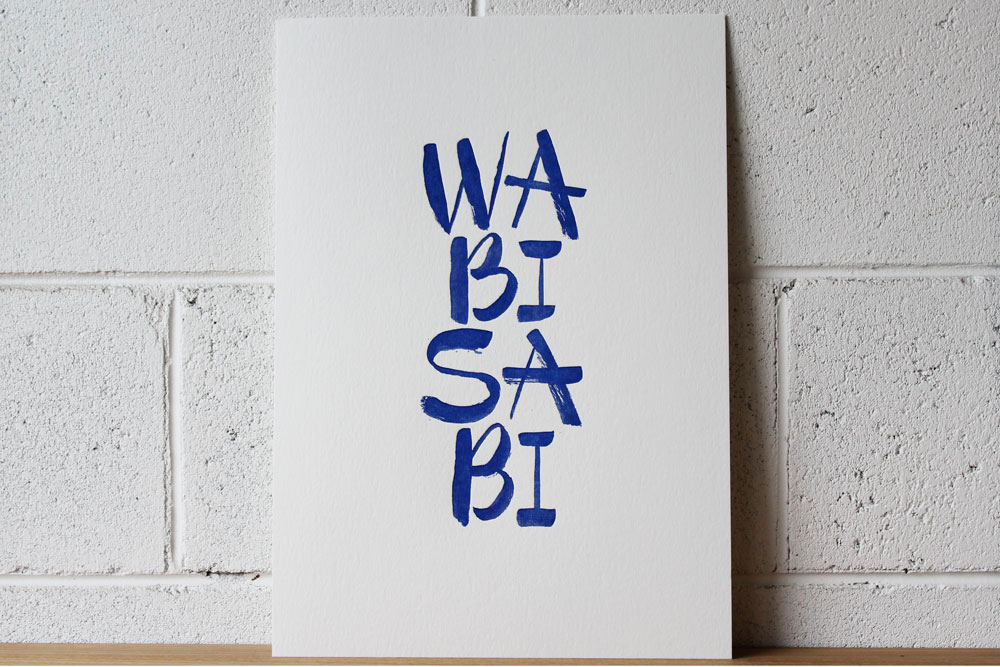 WA
BI
SA
BI